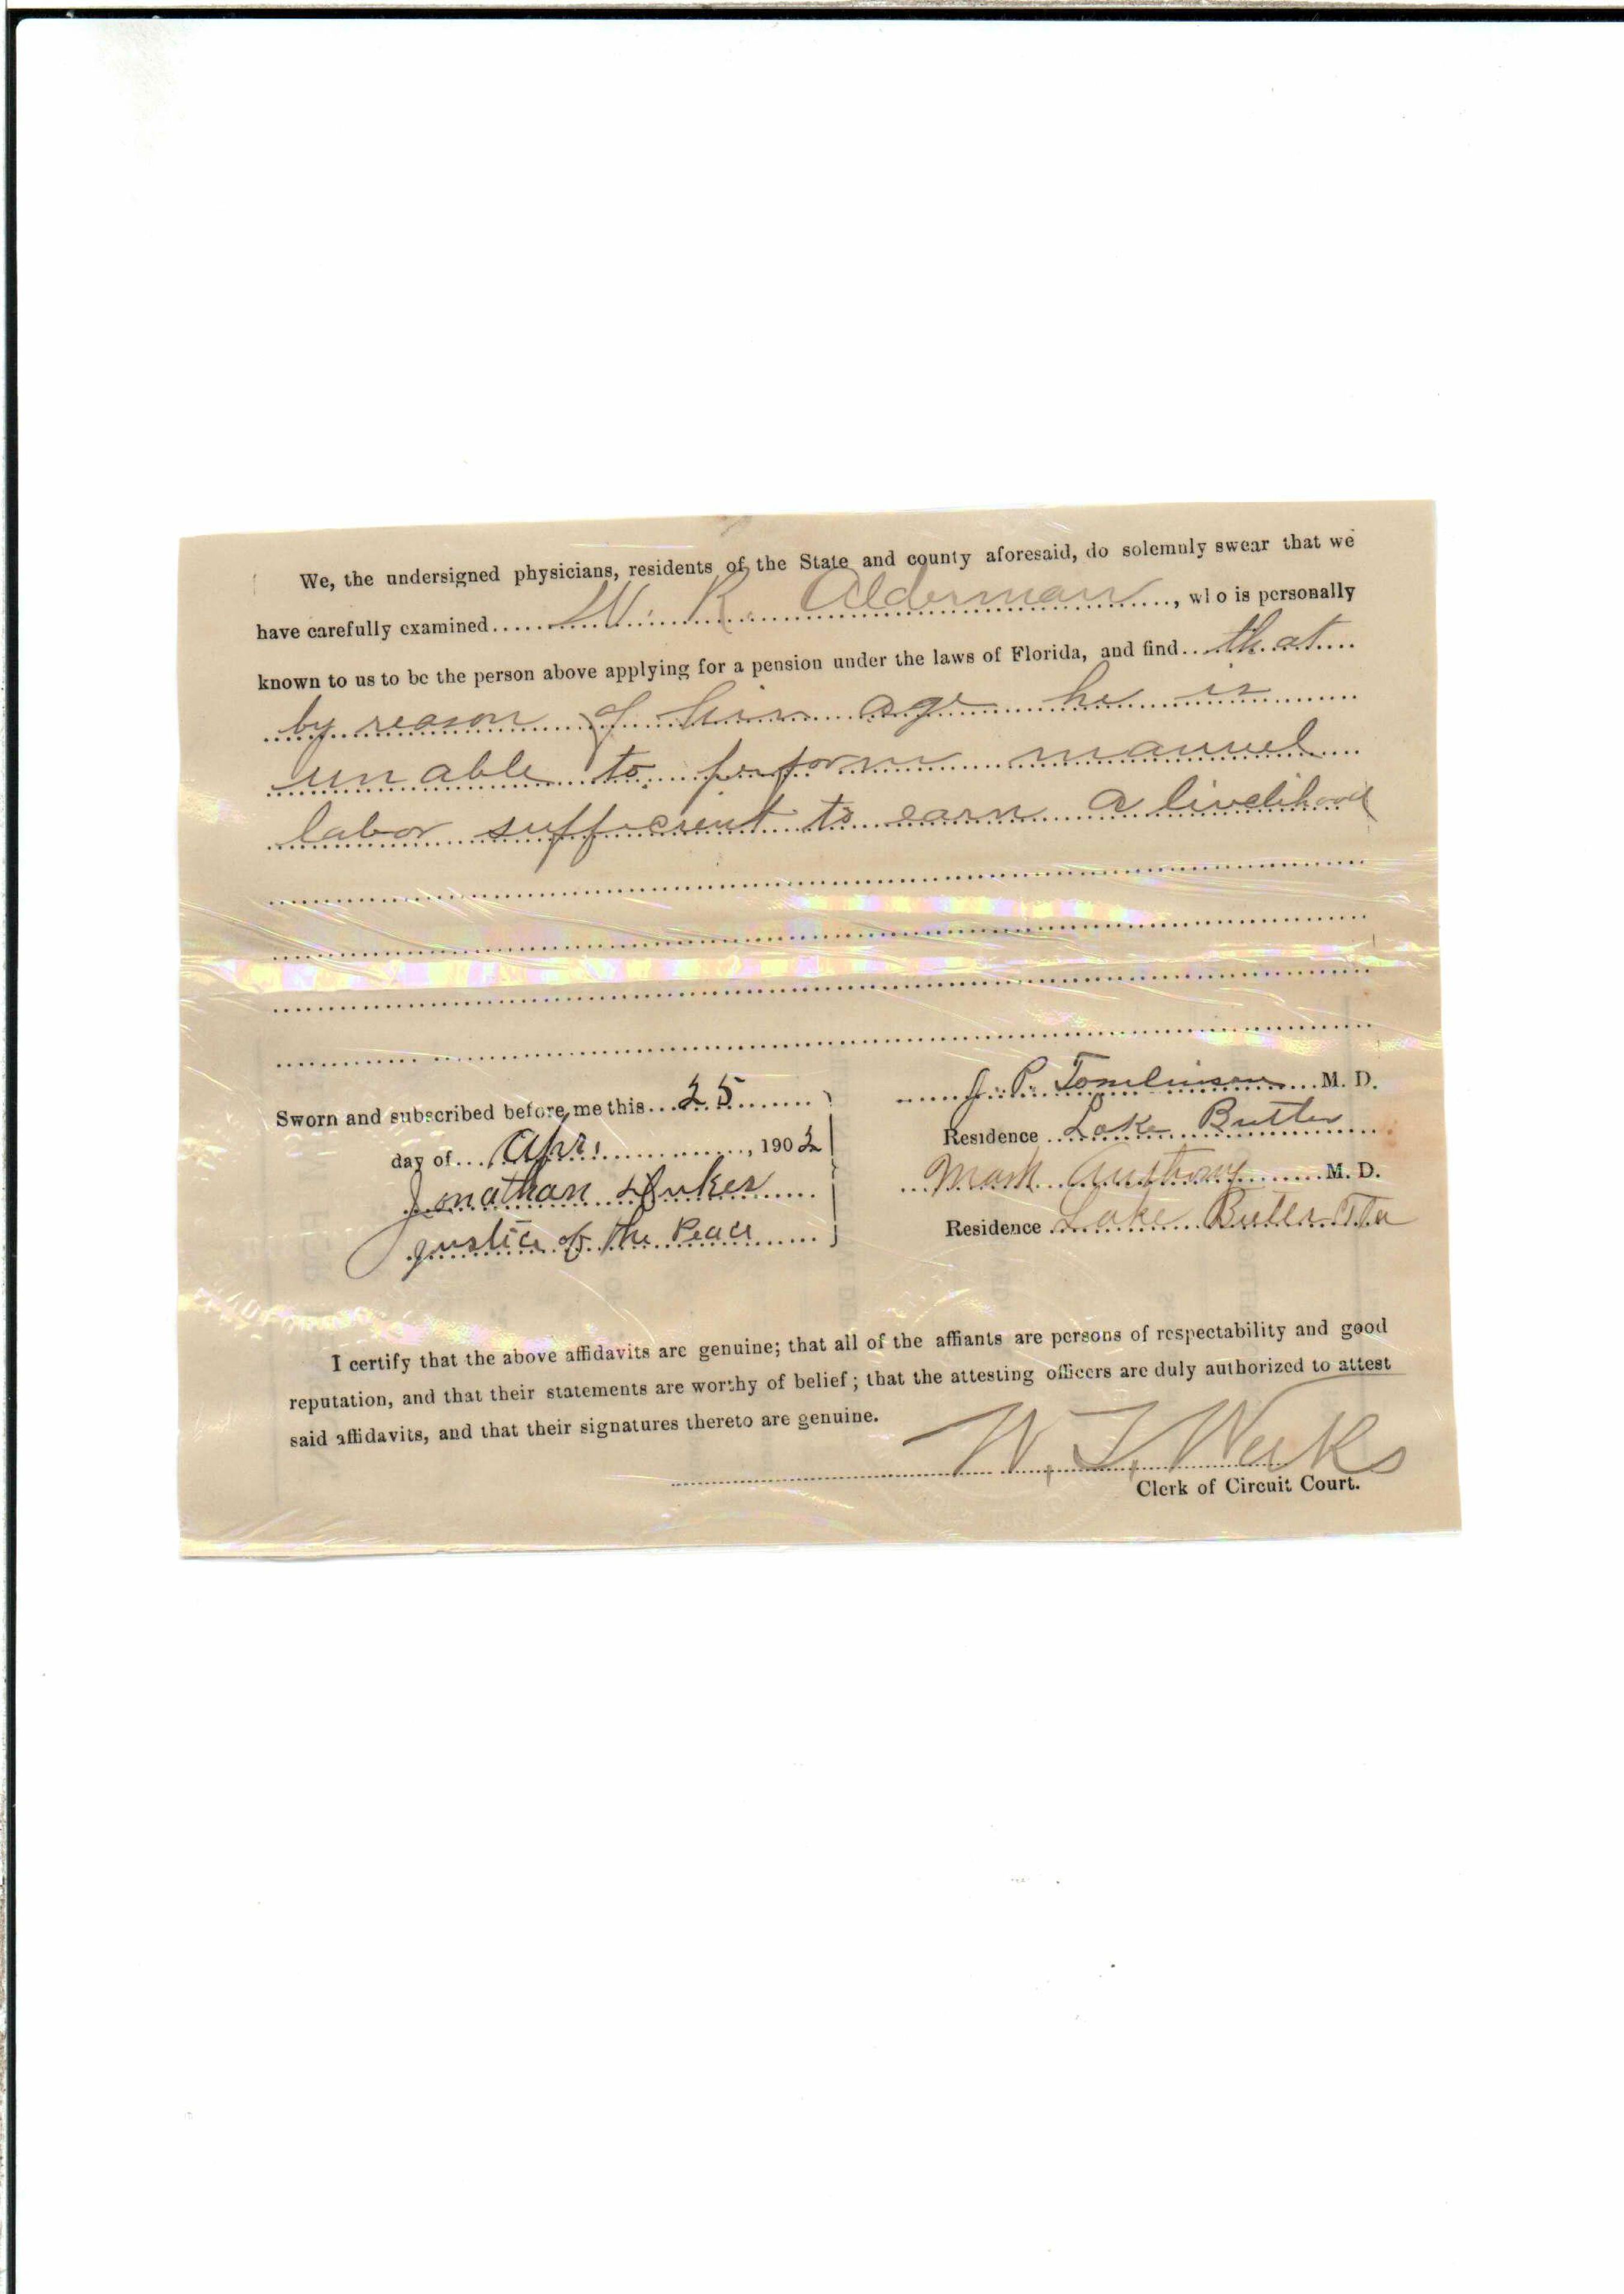 We, the undersigned physicians, residents of the State and county aforesaid, do solemnly swear that we
have carefully examined W. R. Alderman, who is personally
known to us to be the person above applying for a pension under the laws of Florida, and find that
by reason of his age he is
unable to perform manuel
labor sufficient to earn a livelihood
Sworn and subscribed before me this 25
day of Apr., 1902
Jonathan Dukes
Justice of the Peace
J. P. Tomlinson M. D.
Residence Lake Butler
Mark M. D.
Residence Lake Butler Fla
I certify that the above affidavits are genuine; that all of the affiants are persons of respectability and good
reputation, and that their statements are worthy of belief; that the attesting officers are duly authorized to attest
said affidavits, and that their signatures thereto are genuine.
W. T. Weeks
Clerk of Circuit Court.